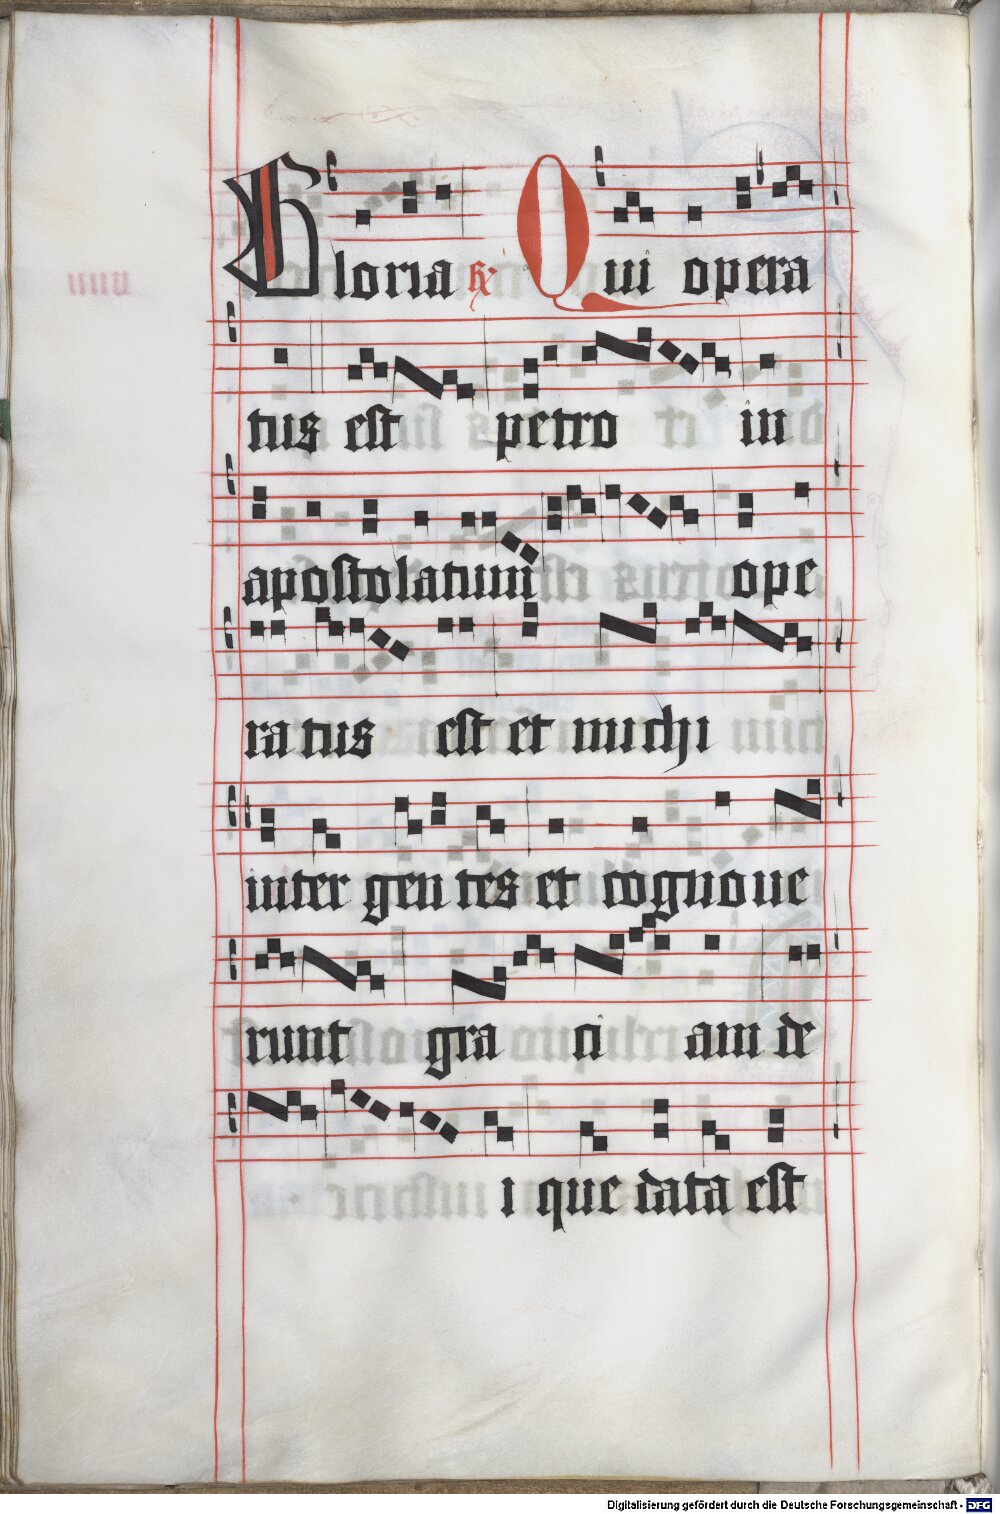 Gloria ℟ Qui opera
tus est petro in
apostolatum ope
ra tus est et michi
inter gen tes et cognoue
runt gra ci am de
i que data est
Digitalisierung gefördert durch die Deutsche Forschungsgemeinschaft - DFG